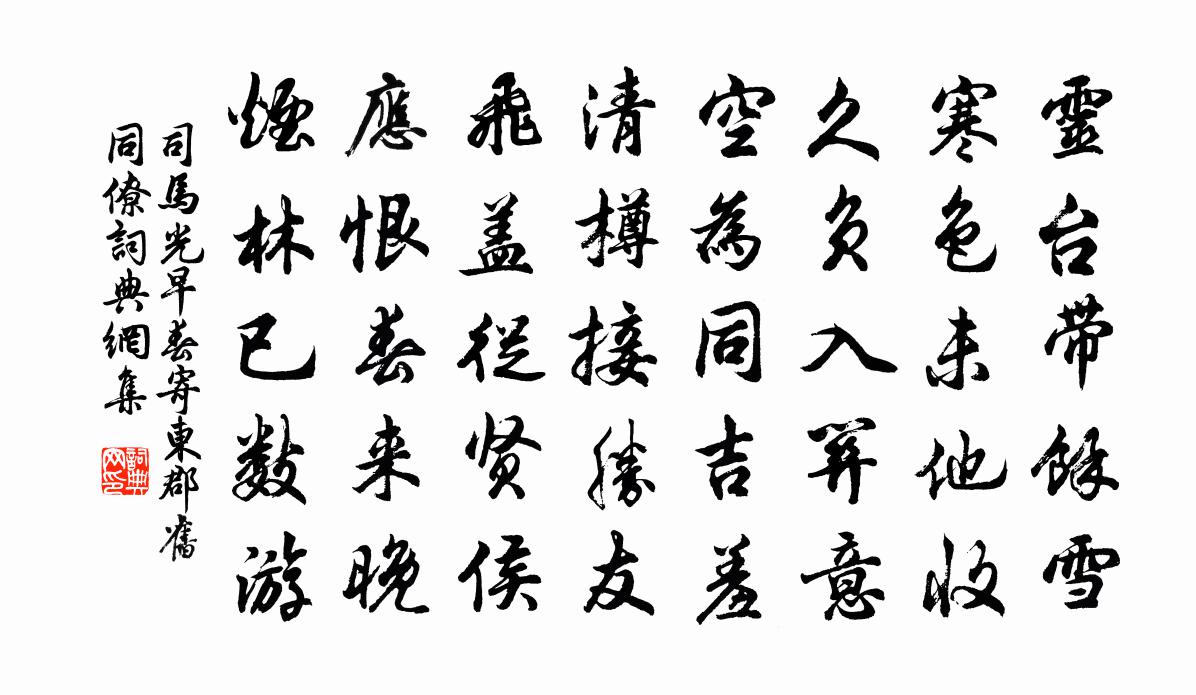 靈台带餘雪
寒色未他收
久负入關意
空為同吉羞
清樽接勝友
飛盖從贤侯
應恨春来晚
煙林已數游
司馬光早春寄東郡舊
同僚詞典網集
詞典
网印